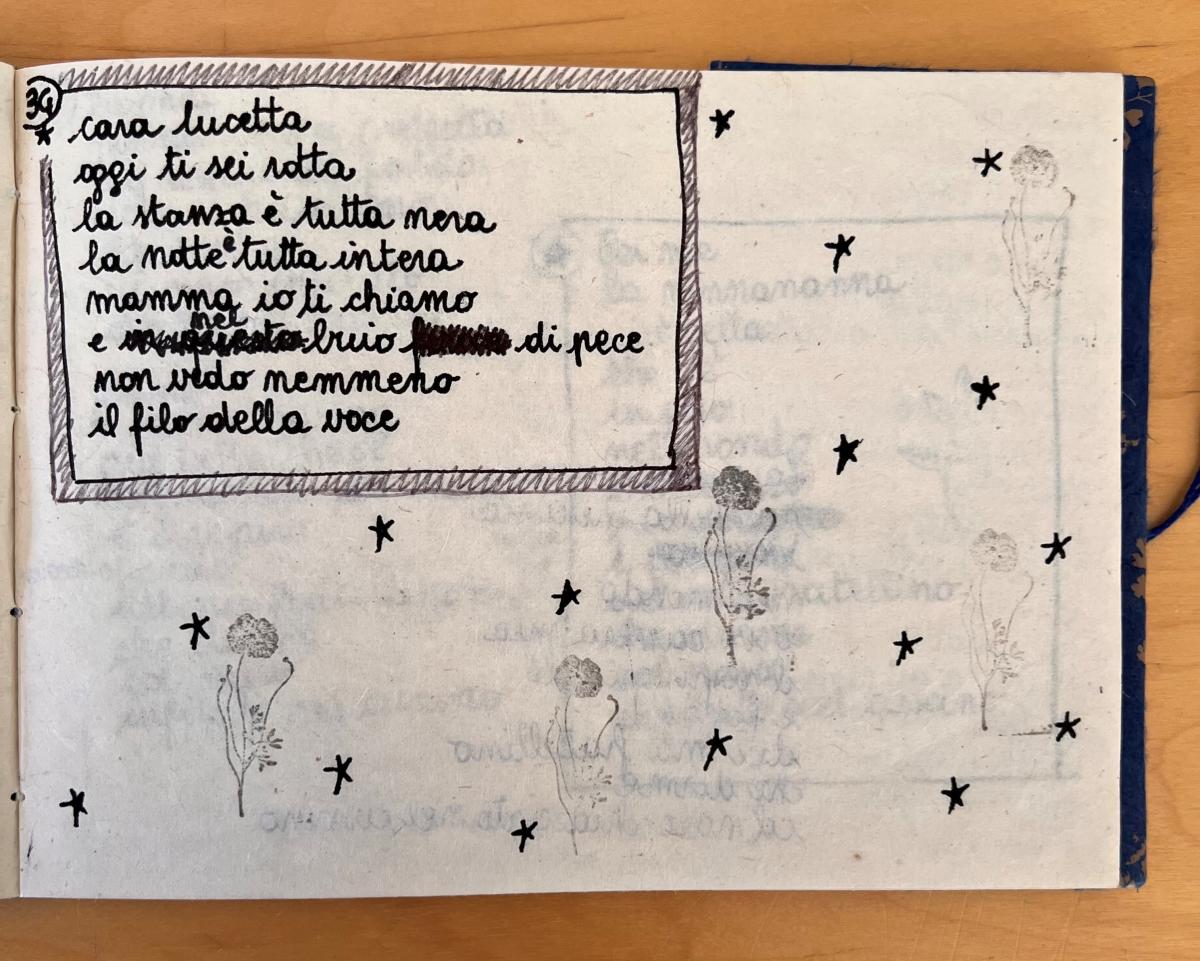 34
cara lucetta
oggi ti sei rotta
la stanza è tutta nera
la notte è tutta intera
mamma io ti chiamo
e nel buio di pece
non vedo nemmeno
il filo della voce